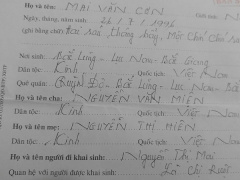 Họ và tên: MAI VĂN CÔN
Ngày, tháng, năm sinh: 26 / 7 / 1996
(ghi bằng chữ) Hai sáu, tháng bảy, Một chín chín sáu
Nơi sinh: Bắc Lũng - Lục Nam - Bắc Giang
Dân tộc: Kinh Quốc tịch: Việt Nam
Quê quán: Lục Nam
Họ và tên cha: NGUYỄN VĂN MIÊN
Dân tộc: Kinh Quốc tịch: Việt Nam
Họ và tên mẹ: NGUYỄN THỊ HIỀN
Dân tộc: Kinh Quốc tịch: Việt Nam
Họ và tên người đi khai sinh: Nguyễn Thị Mai
Quan hệ với người được khai sinh: